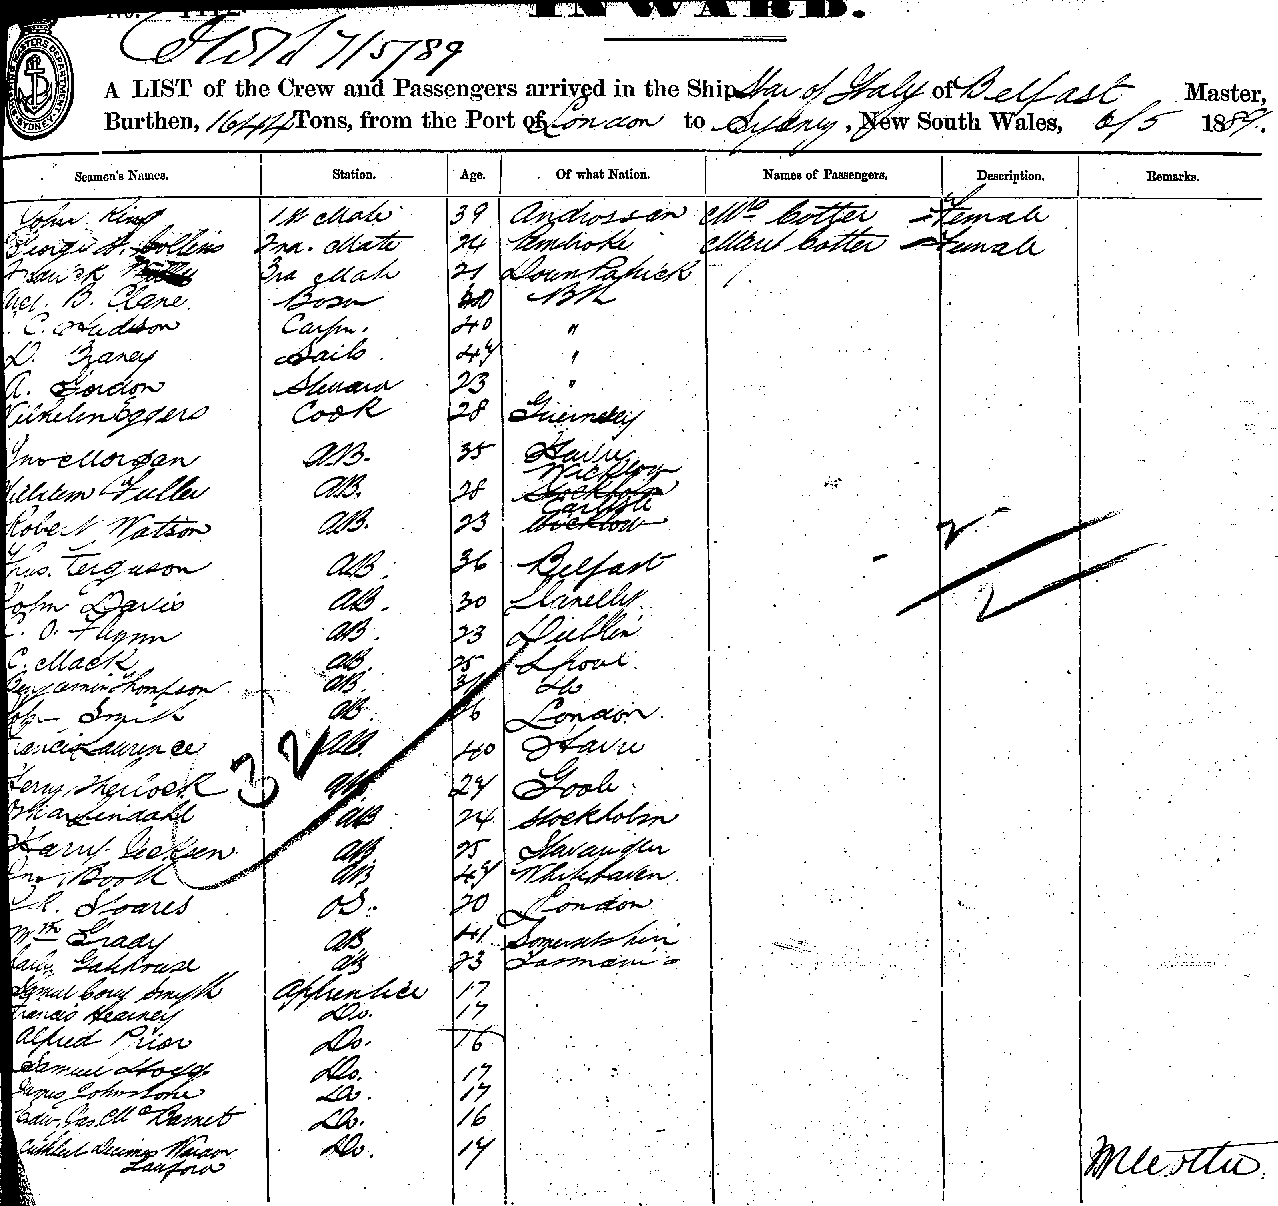 INWARD.
7/5/89
A LIST of the Crew and Passengers arrived in the Ship Star of Italy of Belfast Master,
Burthen, 1644 Tons, from the Port of London to Sydney, New South Wales, 6/5 1889.
Seamen's Names. Station. Age. Of what Nation. Names of Passengers. Description. Remarks.
John King 1st Mate 39 Androssan Mrs Cotter Female
George H. Collins 2nd. Mate 24 Pembroke Marie Cotter Female
3rd Mate 21 Down Patrick
B. Clane Bosn 40
C. Hudson Carpn. 40 "
D. Sails 47 "
A. Gordon Steward 23 "
Wilhelm Eggers Cook 28 Guernsey
Jno Morgan AB. 35 Havre
Wicklow
William Fuller AB. 28 Stockholm
Carlisle
Robert Watson AB. 23 Wicklow
Thos. Ferguson AB. 36 Belfast
John Davis AB. 30 Llanelly
C. O. Flynn AB. 23 Dublin
C. Mack AB. 25 Lpool
Benjamin Thompson AB. Do
John Smith AB. London
Francis Laurence AB. 40 Havre
32
AB 24 Goole
Oskar Lindahl AB 24 Stockholm
Harry Jecksen AB 25 Stavanger
Jno Book AB 47 Whitehaven
Soares OS. 20 London
Wm Grady AB 41 Somersetshire
Gakhouse AB 23 Tasmania
Samuel Cory Smyth Apprentice 17
Francis Hearney Do. 17
Alfred Prior Do. 16
Samuel Hogg Do. 17
James Johnstone Do. 17
Do. 16
Cuthbert Decimus Do. 17
2
2